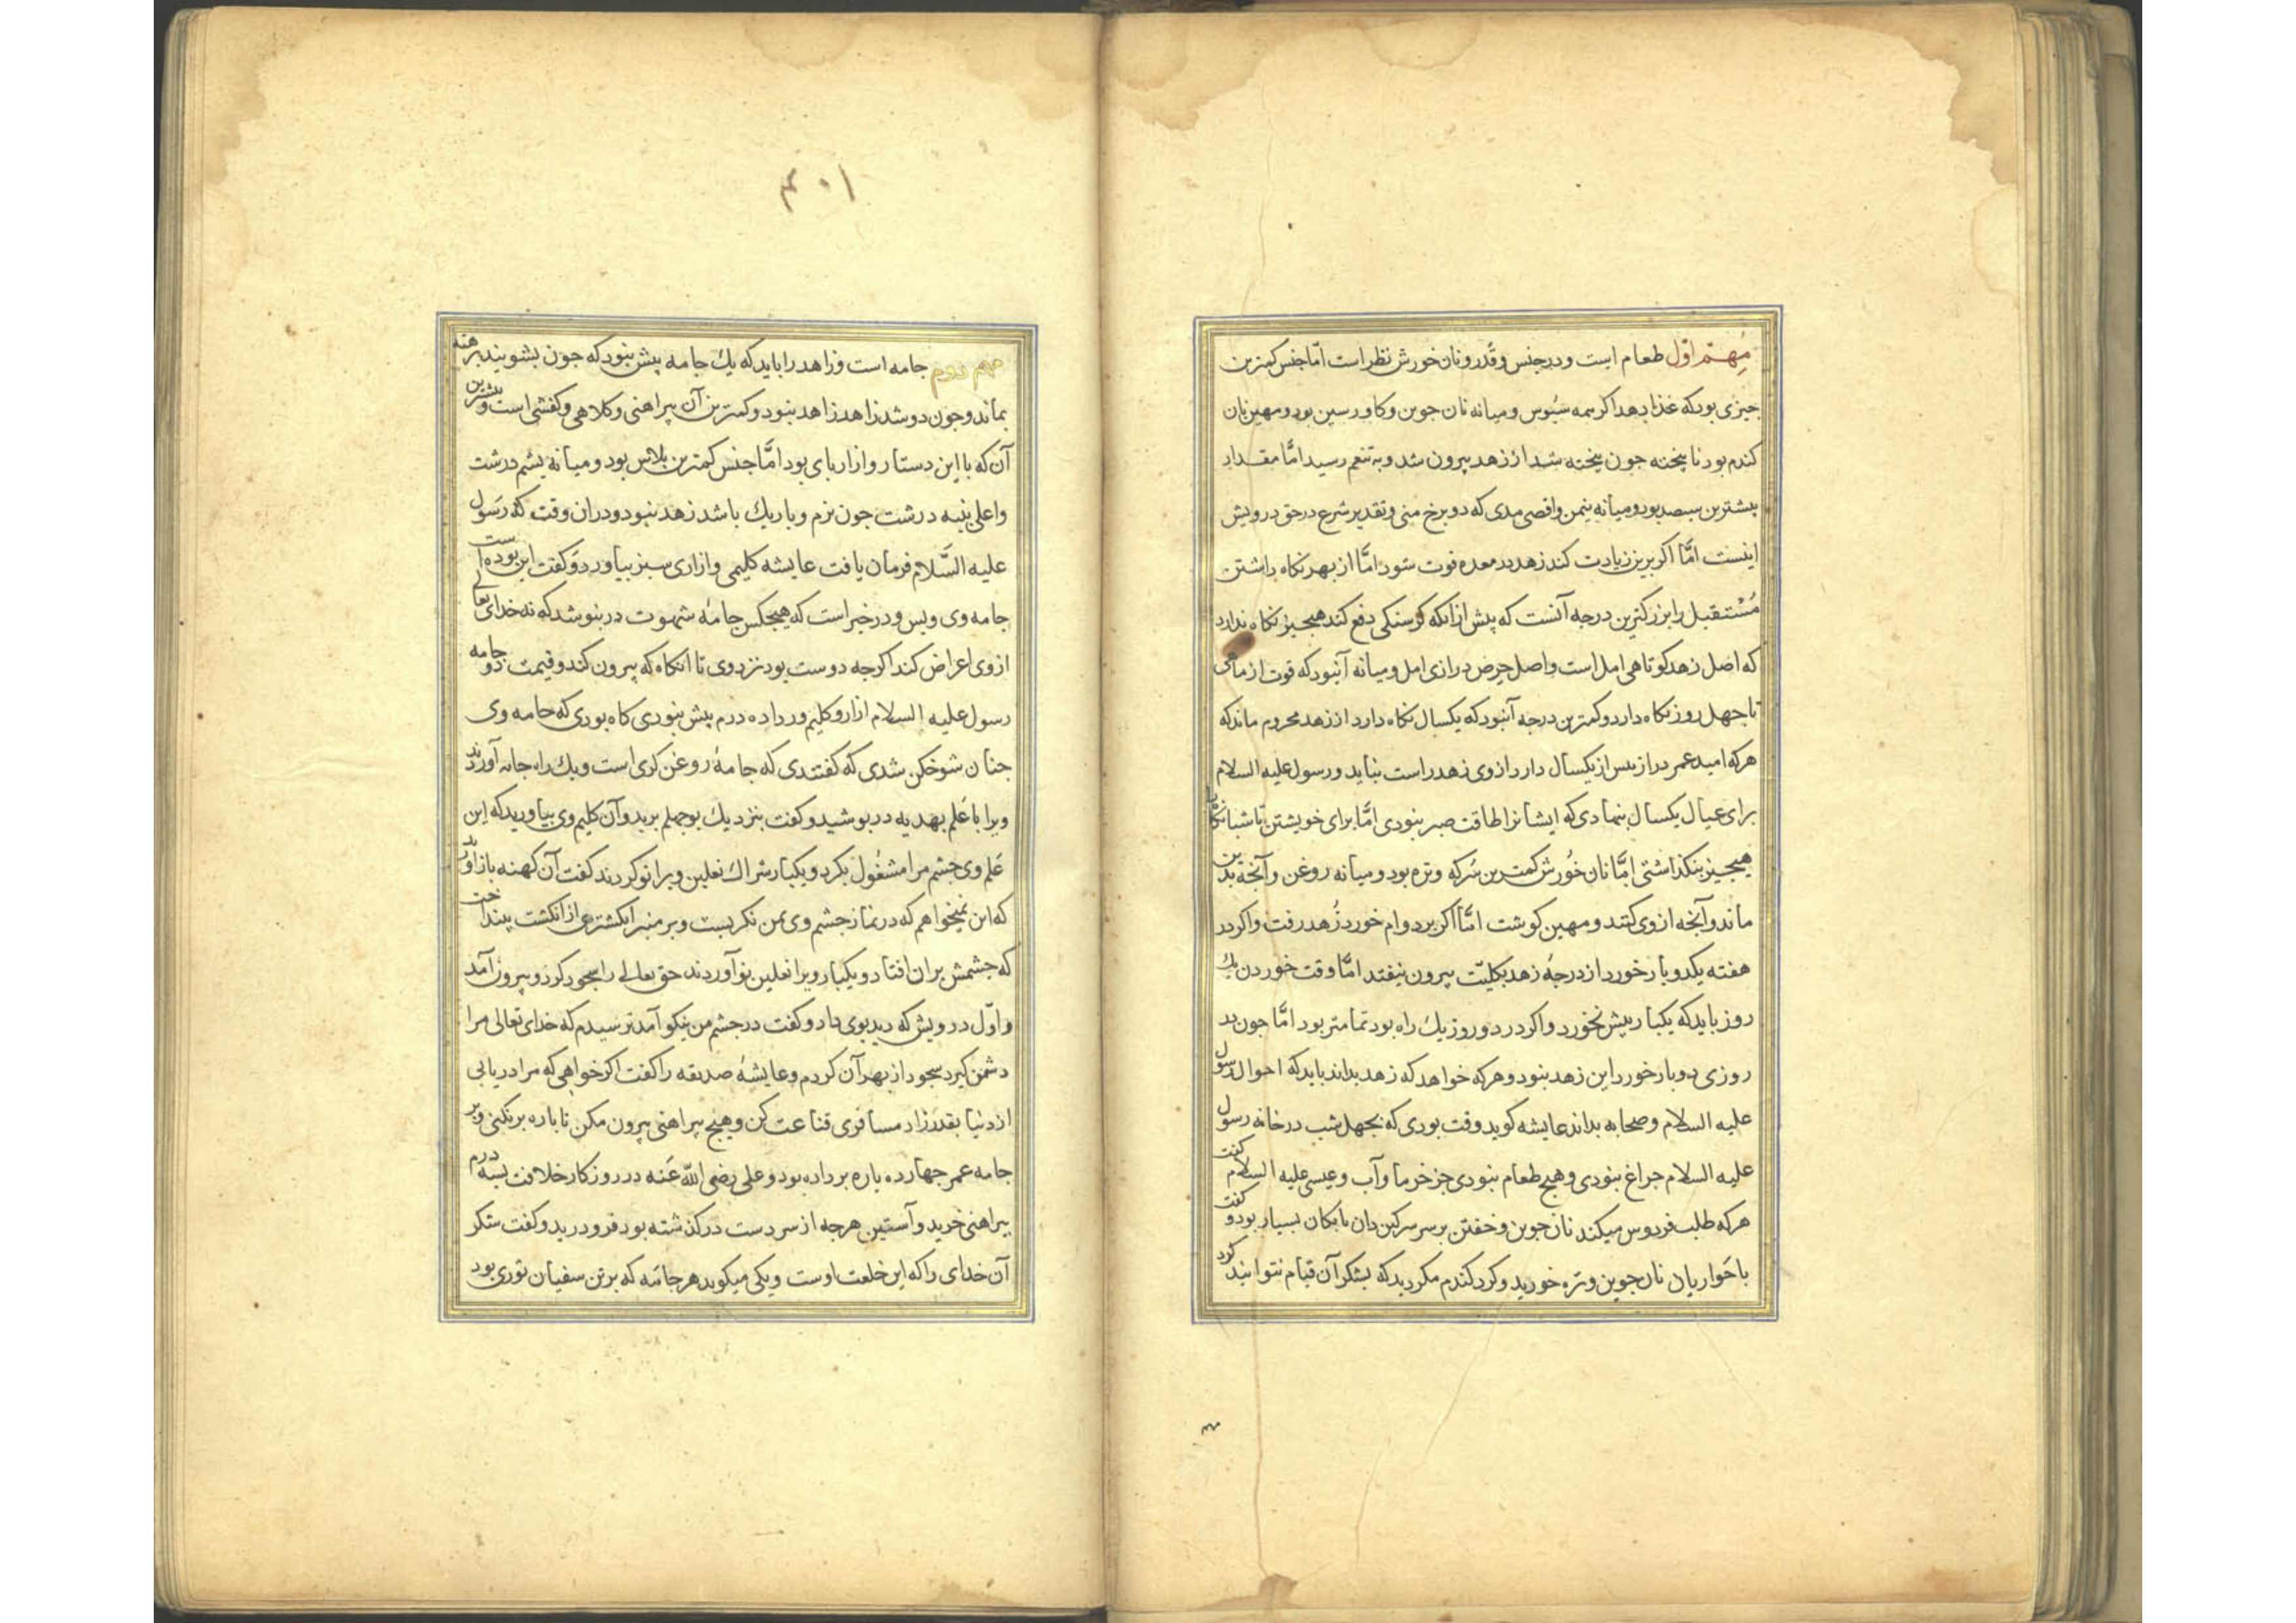 مهمّ اوّل طعام است ودرجنس وقدر ونان خورش نظر است امّا جنس كمترين
جيزى بودكه غذا دهد اكرهمه سبوس وميانه نان جوين وكاورسين بود ومهين نان
كندم بود نا پخته جون پخته شد از زهد بيرون شد وبه تنعم رسيد امّا مقدار
بيشترين سيصد بود وميانه نيمن واقصى مدى كه دوبرخ منى وتقدير شرع درحق درويش
اينست امّا اكر برين زيادت كند زهد در معده فوت شود امّا از بهر نكاه داشتن
مُسْتقبل را بزركترين درجه آنست كه پيش ازانكه كرسنكى دفع كند هيجيز نكاه ندارد
كه اصل زهد كوتاهى امل است واصل حرص درازى امل وميانه آنبود كه قوت از ماهى
تا جهل روز نكاه دارد وكمترين درجه آنبود كه يكسال نكاه دارد از زهد محروم ماند كه
هركه اميد عمر دراز بس از يكسال دارد ازوى زهد راست نيايد ورسول عليه السلام
براى عيال يكسال بنهادى كه ايشانرا طاقت صبر نبودى امّا براى خويشتن تا شبانكاه
هيجيز بنكذاشتى امّا نان خورش كمترين سركه وتره بود وميانه روغن وآنجه بدين
ماند وآنجه ازوى كنند ومهين كوشت امّا اكر بر دوام خورد زُهد رفت واكر در
هفته يكدو بار خورد از درجهٔ زهد بكليّت بيرون نيفتد امّا وقت خوردن يك
روز بايد كه يكبار بيش نخورد واكر در دو روز يك راه بود تمامتر بود امّا جون در
روزى دوبار خورد اين زهد نبود وهركه خواهد كه زهد بداند بايد كه احوال رسول
عليه السلام وصحابه بداند عايشه كويد وقت بودى كه بجهل شب در خانه رسول
عليه السلام جراغ نبودى وهيج طعام نبودى جز خرما وآب وعيسى عليه السلام كفت
هركه طلب فردوس ميكند نان جوين وخفتن بر سر سركين دان با سكان بسيار بود وكفت
با حواريان نان جوين وتره خوريد وكرد كندم مكرديد كه بشكر آن قيام نتوانيد كرد
٣٠١
مهم دوم جامه است وزاهد را بايد كه يك جامه پيش نبود كه جون بشويند برهنه
بماند وجون دو شد زاهد زاهد نبود وكمترين آن پيراهنى وكلاهى وكفشى است وبيشترين
آن كه با اين دستار وازار باى بود امّا جنس كمترين بلاس بود وميانه پشم درشت
واعلى پنبه درشت جون نرم وباريك باشد زهد نبود ودران وقت كه رَسول
عليه السَّلام فرمان يافت عايشه كليمى وازارى سبز بياورد وكفت اين بوده است
جامه وى وبس ودر خبر است كه هيجكس جامهٔ شهوت در نپوشد كه نه خداى تعالى
ازوى اعراض كند اكرجه دوست بود نزد وى تا انكاه كه بيرون كند وقيمت دو جامه
رسول عليه السلام ازار وكليم ور داده درم بيش نبودى كاه بودى كه جامه وى
جنان شوخكن شدى كه كفتندى كه جامهٔ روغن كرى است ويك راه جامه آوردند
ويرا با عَلم بهديه در بوشيد وكفت بنزديك بوجهلم بريد وآن كليم وى بياوريد كه اين
عَلم وى جشم مرا مشغُول بكرد ويكبار شراك نعلين ويرا نو كردند كفت آن كهنه باز آوريد
كه اين نميخواهم كه در نماز جشم وى بمن نكريست وبر منبر انكشترى از انكشت بينداخت
كه جشمش بران افتاد ويكبار ويرا نعلين نو آوردند حق تعالى را سجود كرد وبيرون آمد
واوّل درويش كه ديد بوى داد وكفت درجشم من نيكو آمد ترسيدم كه خداى تعالى مرا
دشمن كيرد سجود از بهر آن كردم وعايشهٔ صديقه را كفت اكر خواهى كه مرا دريابى
از دنيا بقدر زاد مسافرى قناعت كن وهيج پيراهنى بيرون مكن تا باره بر نكنى وبر
جامه عمر جهارده باره بر داده بود وعلى رضى الله عَنه در روزكار خلافت بسه درم
پيراهنى خريد وآستين هرجه از سر دست دركذشته بود فرو دريد وكفت شكر
آن خداى را كه اين خلعت اوست ويكى ميكويد هر جامَه كه بر تن سفيان ثورى بود